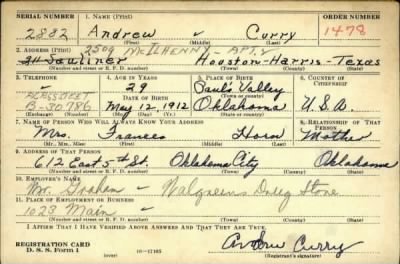 SERIAL NUMBER 1. NAME (Print) ORDER NUMBER
2882 Andrew — Curry 1478
(First) (Middle) (Last)
2509 McILHENNY - APT. 4
2. ADDRESS (Print)
Sauliner Houston-Harris-Texas
(Number and street or R. F. D. number) (Town) (County) (State)
3. TELEPHONE 4. AGE IN YEARS 5. PLACE OF BIRTH 6. COUNTRY OF CITIZENSHIP
29 Paul's Valley
DATE OF BIRTH (Town or county)
B-30786 May 12, 1912 Oklahoma U.S.A.
(Exchange) (Number) (Mo.) (Day) (Yr.) (State or country)
7. NAME OF PERSON WHO WILL ALWAYS KNOW YOUR ADDRESS 8. RELATIONSHIP OF THAT PERSON
Mrs. Frances Horn Mother
(Mr., Mrs., Miss) (First) (Middle) (Last)
9. ADDRESS OF THAT PERSON
612 East 5th St. Oklahoma City Oklahoma
(Number and street or R. F. D. number) (Town) (County) (State)
10. EMPLOYER'S NAME
Mr. Graham - Walgreens Drug Store
11. PLACE OF EMPLOYMENT OR BUSINESS
1028 Main
(Number and street or R. F. D. number) (Town) (County) (State)
I AFFIRM THAT I HAVE VERIFIED ABOVE ANSWERS AND THAT THEY ARE TRUE.
REGISTRATION CARD
D. S. S. Form 1 (over) 16-17105
Andrew Curry
(Registrant's signature)